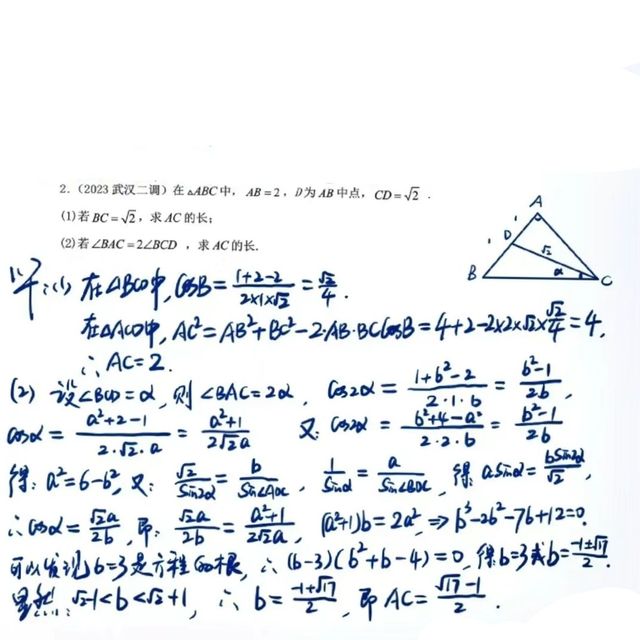 2.（2023 武汉二调）在△ABC中，AB=2，D为AB中点，CD=√2 .
(1)若BC=√2，求AC的长；
(2)若∠BAC=2∠BCD ，求AC的长.
A
D
B
C
1
1
√2
α
解:(1) 在△BCD中, cosB=(1+2-2)/(2×1×√2)=√2/4.
在△ACD中, AC²=AB²+BC²-2·AB·BCcosB=4+2-2×2×√2×√2/4=4,
∴AC=2.
(2) 设∠BCD=α, 则∠BAC=2α, cos2α=(1+b²-2)/(2·1·b)=(b²-1)/(2b),
cosα=(a²+2-1)/(2·√2·a)=(a²+1)/(2√2a) 又: cos2α=(b²+4-a²)/(2·2·b)=(b²-1)/(2b)
得: a²=6-b², 又: √2/sin2α=b/sin∠ADC, 1/sinα=a/sin∠BDC, 得 a sinα=bsin2α/√2,
∴cosα=√2a/2b, 即: √2a/2b=(a²+1)/(2√2a), (a²+1)b=2a², ⇒b³-2b²-7b+12=0.
可以发现b=3是方程的根, ∴(b-3)(b²+b-4)=0, 得b=3或b=(-1±√17)/2.
显然: √2-1<b<√2+1, ∴b=(-1+√17)/2, 即AC=(√17-1)/2.